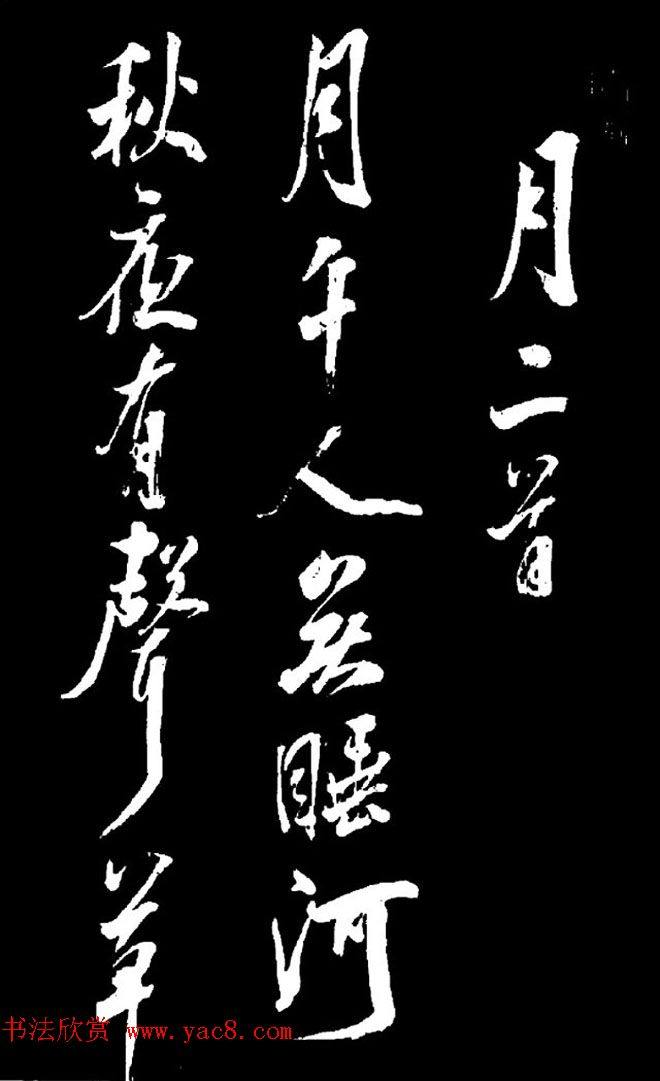 月二首
月午人睡河
秋夜有聲草
书法欣赏 www.yac8.com